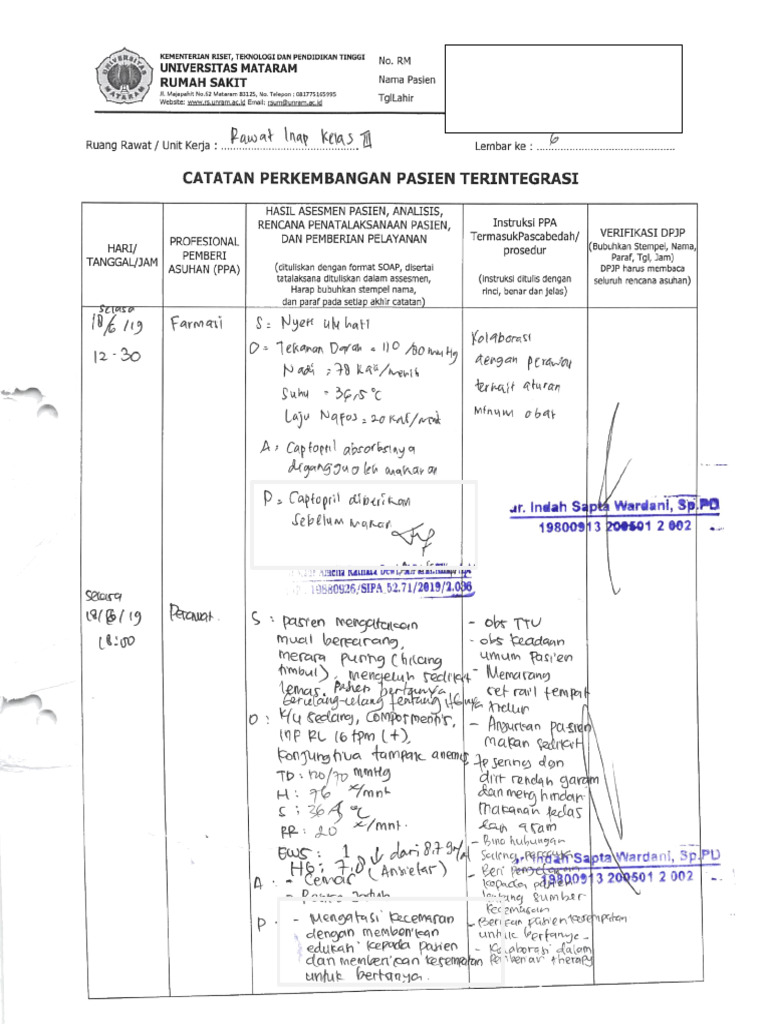 KEMENTERIAN RISET, TEKNOLOGI DAN PENDIDIKAN TINGGI
UNIVERSITAS MATARAM
RUMAH SAKIT
Jl. Majapahit No.62 Mataram 83125, No. Telepon : 081775165995
Website: www.rs.unram.ac.id Email: rsum@unram.ac.id
UNIVERSITAS MATARAM
No. RM
Nama Pasien
TglLahir
Ruang Rawat / Unit Kerja : Rawat Inap Kelas III
Lembar ke : 6
CATATAN PERKEMBANGAN PASIEN TERINTEGRASI
HARI/
TANGGAL/JAM
PROFESIONAL
PEMBERI
ASUHAN (PPA)
HASIL ASESMEN PASIEN, ANALISIS,
RENCANA PENATALAKSANAAN PASIEN,
DAN PEMBERIAN PELAYANAN
(dituliskan dengan format SOAP, disertai
tatalaksana dituliskan dalam assesmen,
Harap bubuhkan stempel nama,
dan paraf pada setiap akhir catatan)
Instruksi PPA
TermasukPascabedah/
prosedur
(instruksi ditulis dengan
rinci, benar dan jelas)
VERIFIKASI DPJP
(Bubuhkan Stempel, Nama,
Paraf, Tgl, Jam)
DPJP harus membaca
seluruh rencana asuhan)
Selasa
18/6/19
12.30
Farmasi
S = Nyeri ulu hati
O = Tekanan Darah = 110/80 mmHg
Nadi = 78 kali/menit
Suhu = 36,5 °C
Laju Nafas = 20 kali/menit
A = Captopril absorbsinya
diganggu oleh makanan
P = Captopril diberikan
sebelum makan
Kolaborasi
dengan perawat
terkait aturan
minum obat
dr. Indah Sapta Wardani, Sp.PD
19800913 200501 2 002
19880926/SIPA_52.71/2019/2.036
Selasa
18/6/19
18:00
Perawat
S : pasien mengatakan
mual berkurang,
merasa pusing (hilang
timbul), mengeluh sedikit
lemas. Pasien bertanya
berulang-ulang tentang
O : K/u sedang, composmentis,
inf RL 16 tpm (+),
Konjungtiva tampak anemis
TD : 120/70 mmHg
H : 96 x/mnt
S : 36,5 °C
RR : 20 x/mnt.
EWS : 1
HB : 7,0 ↓ dari 8.7 gr/dl
A : - Cemas (Ansietas)
P : - Mengatasi kecemasan
dengan memberikan
edukasi kepada pasien
dan memberikan kesempatan
untuk bertanya.
- obs TTV
- obs keadaan
umum pasien
- Memasang
set rail tempat
tidur
- Anjurkan pasien
makan sedikit
tp sering dan
diit rendah garam
dan menghindari
makanan pedas
dan asam
- Bina hubungan
saling percaya
- Beri
kepada pasien
tentang sumber
kecemasan
- Berikan pasien kesempatan
untuk bertanya
- Kolaborasi dalam
pemberian therapy
dr. Indah Sapta Wardani, Sp.PD
19800913 200501 2 002